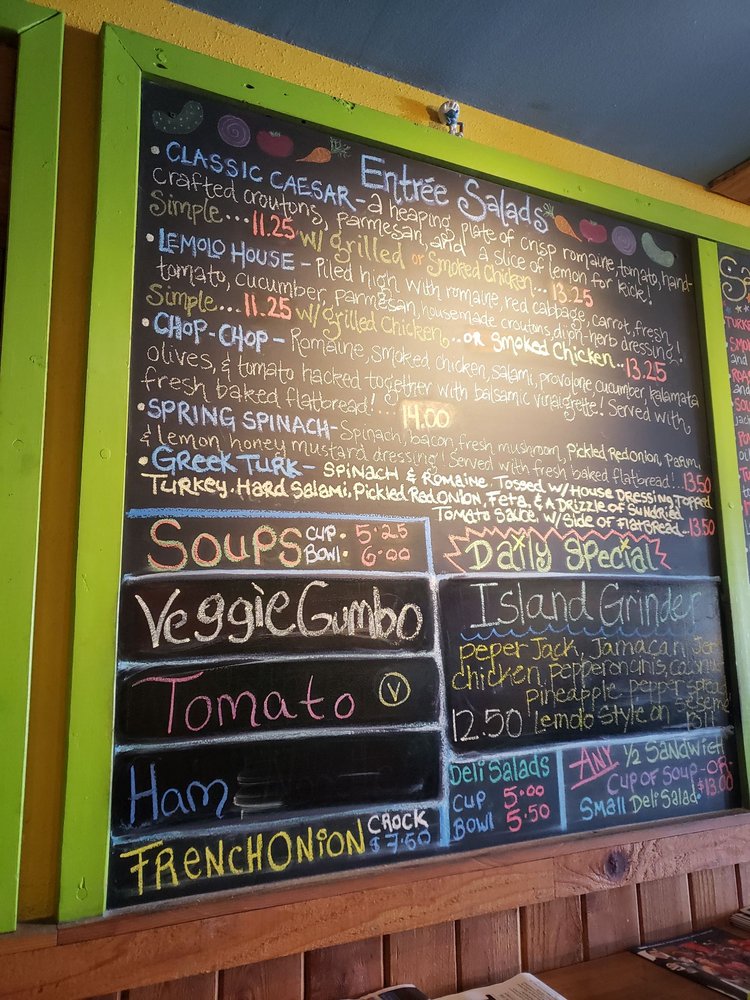 Entrée Salads
• CLASSIC CAESAR - a heaping plate of crisp romaine, tomato, hand-
crafted croutons, parmesan, and a slice of lemon for kick!
Simple... 11.25 w/ grilled or Smoked Chicken... 13.25
• LEMOLO HOUSE - Piled high with romaine, red cabbage, carrot, fresh
tomato, cucumber, parmesan, housemade croutons, dijon-herb dressing!
Simple... 11.25 w/ grilled Chicken... or Smoked Chicken... 13.25
• CHOP-CHOP - Romaine, smoked chicken, salami, provolone cucumber, kalamata
olives, & tomato hacked together with balsamic vinaigrette! Served with
fresh baked flatbread!... 14.00
• SPRING SPINACH - Spinach, bacon, fresh mushroom, Pickled Red Onion, Parm,
& lemon honey mustard dressing! Served with fresh baked flatbread!.. 13.50
• GREEK TURK - SPINACH & ROMAINE TOSSED W/ HOUSE DRESSING TOPPED
TURKEY. HARD SALAMI, PICKLED RED ONION, FETA, & A DRIZZLE OF SUNDRIED
TOMATO SAUCE, W/ SIDE OF FLATBREAD.. 13.50
SOUPS CUP. 5.25
BOWL. 6.00
Veggie Gumbo
Tomato V
Ham
FRENCH ONION CROCK
$7.60
Daily Special
Island Grinder
peper Jack, Jamacan
chicken, pepperoncinis,
pineapple pepper
12.50 Lemolo Style on
Deli Salads
CUP 5.00
BOWL 5.50
ANY 1/2 SANDWICH
CUP OF SOUP -OR-
SMALL Deli Salad $13.00